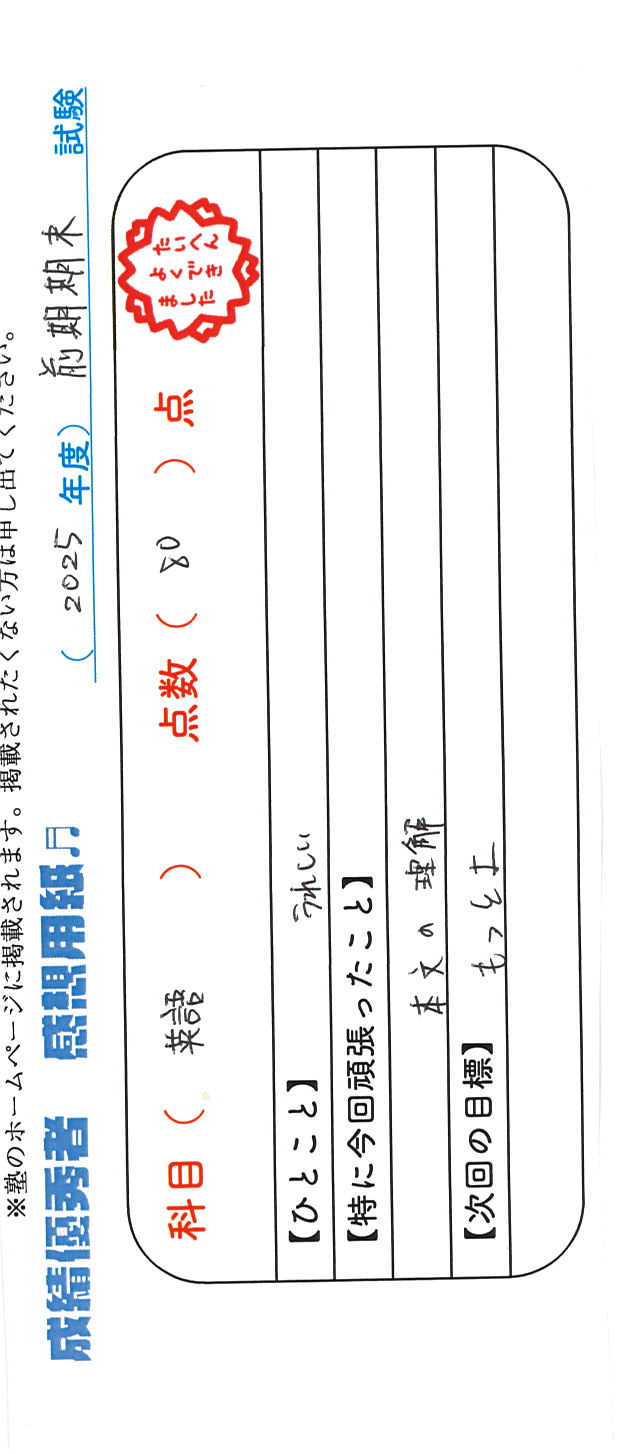 ※塾のホームページに掲載されます。掲載されたくない方は申し出てください。
成績優秀者 感想用紙♫ (2025年度) 前期期末 試験
科目( 英語 ) 点数( 80 )点
たいへん
よくでき
ました
【ひとこと】 うれしい
【特に今回頑張ったこと】
本文の理解
【次回の目標】 もっと上